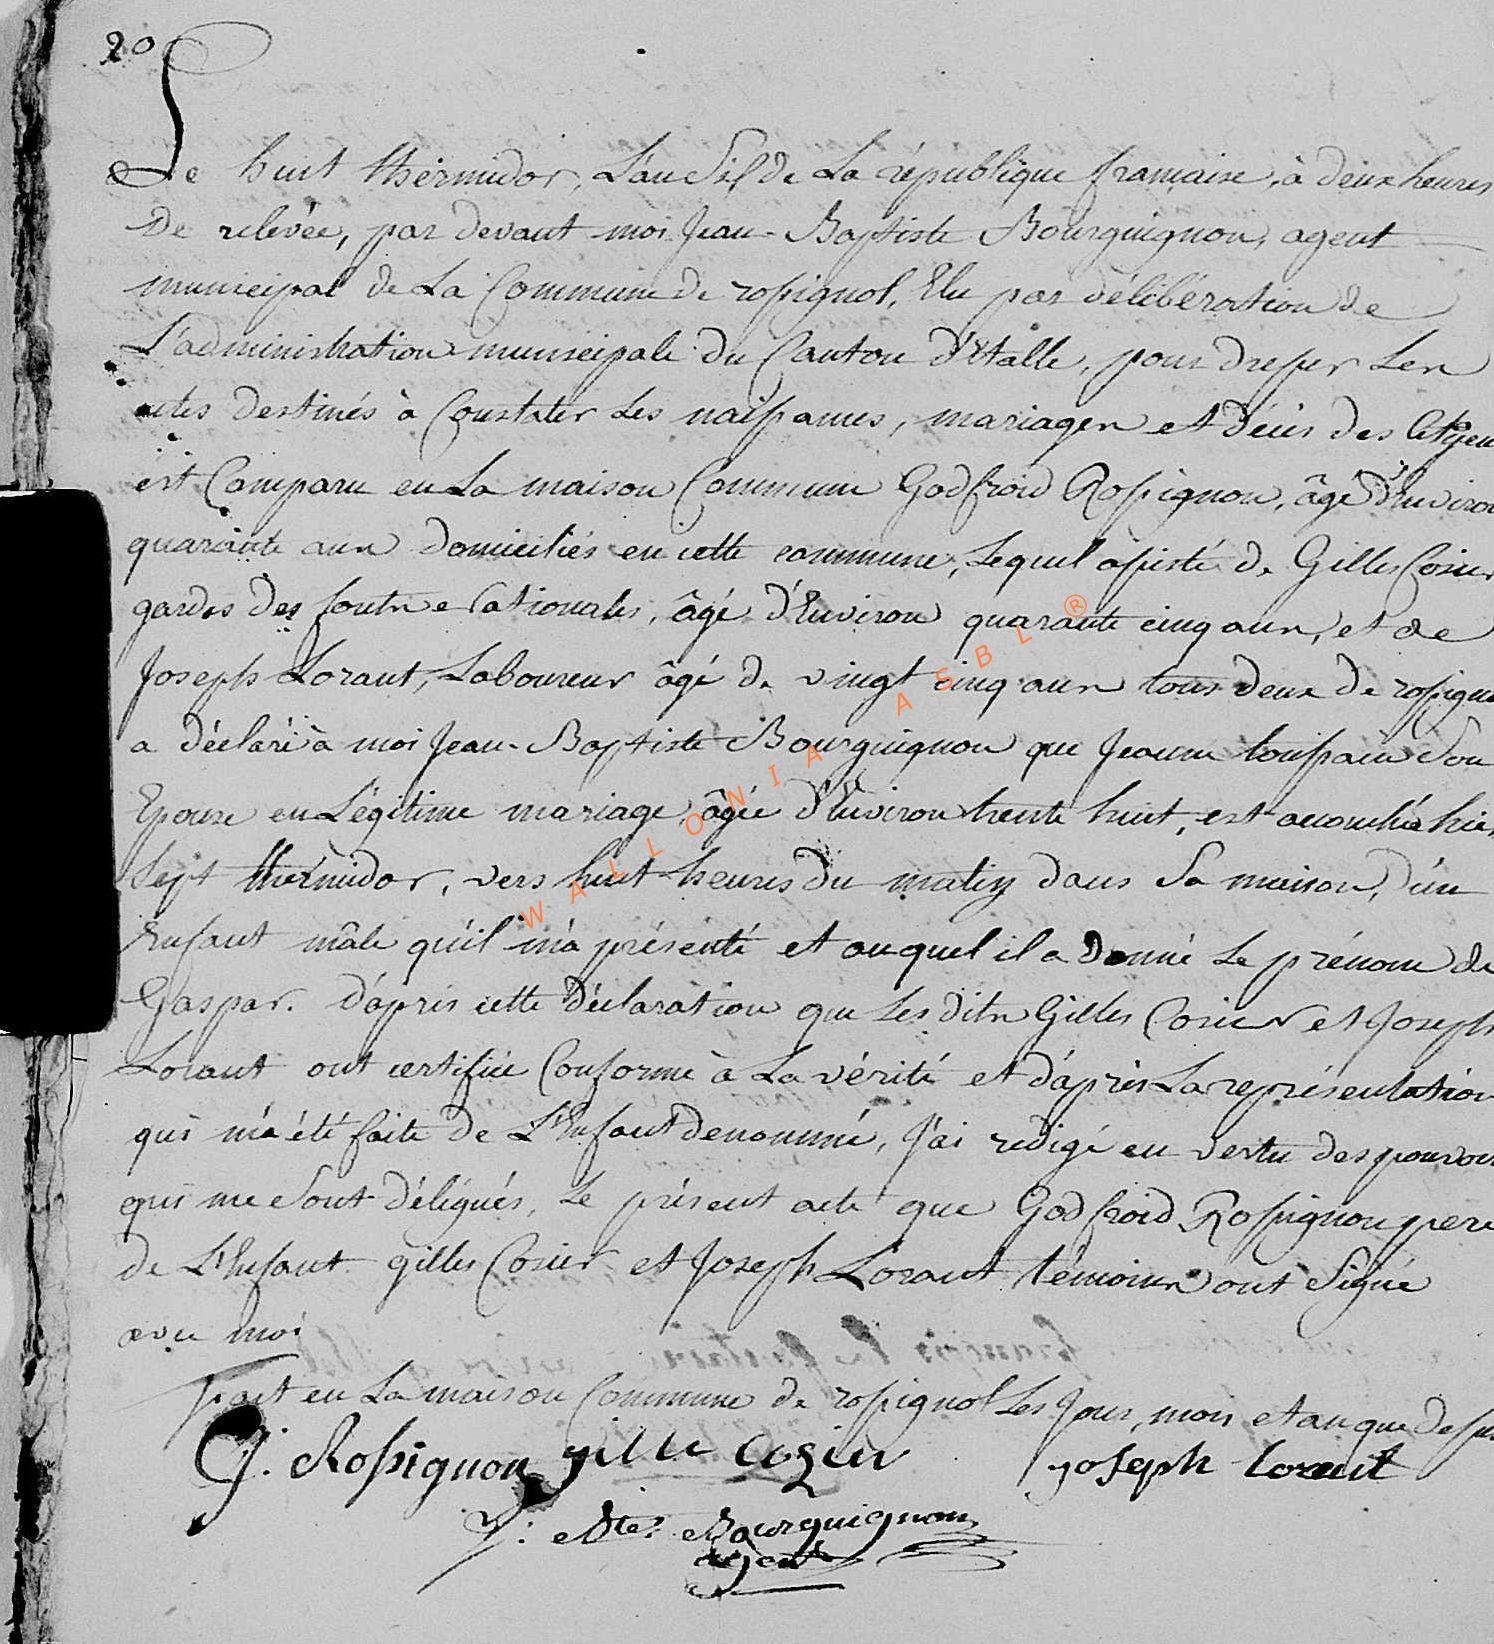 20
Le huit thérmidor, L'an Six de La république française, à deux heures
De relevée, par devant moi Jean-Baptiste Bourguignon, agent
municipal de La Commune de rossignol, Elu par délibération de
L'administration municipale du Canton d'Etalle, pour dresser Les
actes destinés à Constater Les naissances, mariages et décès des Citoyens
est Comparu en La maison Commune Godfroid Rossignon, âgé d'Environ
quarante ans domiciliés en cette commune, Lequel assisté de Gilles Cosier
gardes des forêts nationales, âgé d'Environ quarante cinq ans, et de
Joseph Lorant, Laboureur âgé de vingt cinq ans tous deux de rossignol
a déclaré à moi Jean-Baptiste Bourguignon que Jeanne toussain Son
Epouse en Légitime mariage, âgée d'Environ trente huit, est accouchée hier
Sept thérmidor, vers huit heures du matin dans Sa maison, d'un
Enfant mâle qu'il m'a présenté et auquel il a Donné Le prénom de
Gaspar. D'après cette déclaration que Les dits Gilles Cosier et Joseph
Lorant ont certifiée Conforme à La vérité et d'après La représentation
qui m'a été faite de L'Enfant denommé, J'ai rédigé en vertu des pouvoirs
qui me Sont délégués, Le présent acte que Godfroid Rossignon pere
de L'Enfant gilles Cosier et Joseph Lorant témoins ont Signé
avec moi
fait en La maison Commune de rossignol Les Jour, mois et an que dessus
G. Rossignon gille cozier Joseph lorent
J: Bte: Bourguignon
agent
WALLONIA ASBL ®